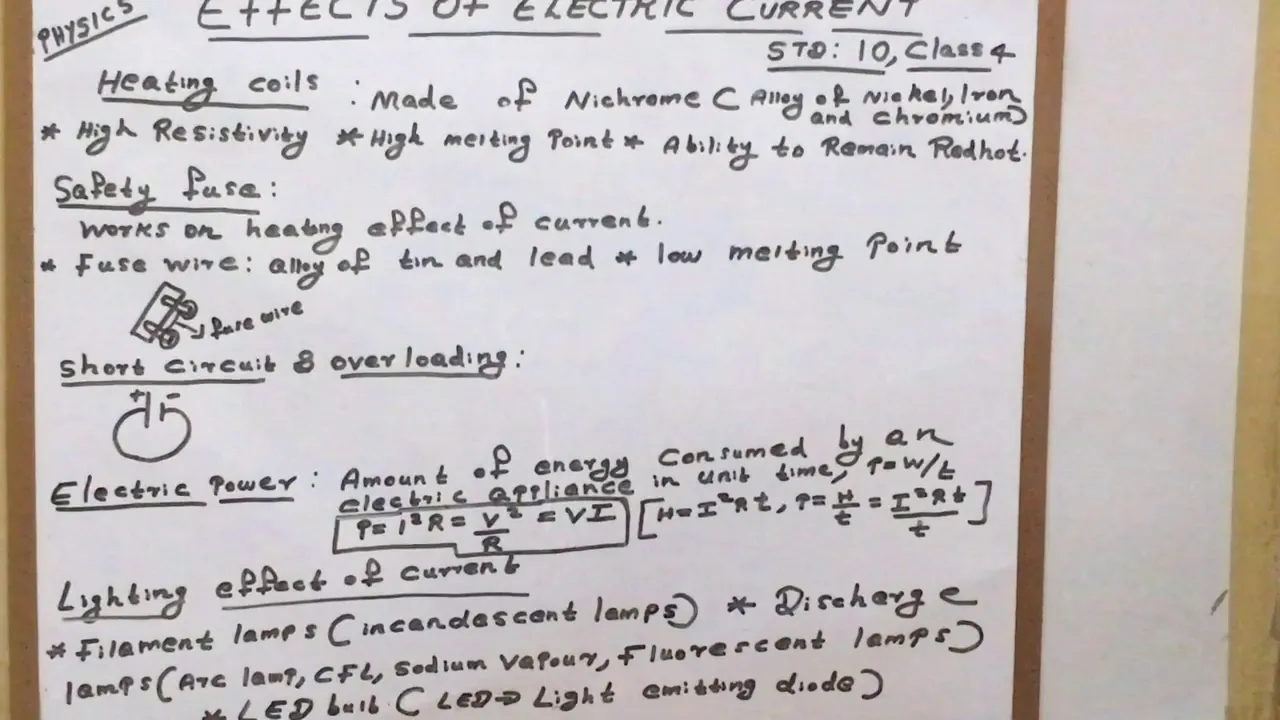 PHYSICS
EFFECTS OF ELECTRIC CURRENT
STD: 10, Class 4
Heating coils : Made of Nichrome (Alloy of Nickel, Iron
and chromium)
* High Resistivity * High melting Point * Ability to Remain Redhot.
Safety fuse:
works on heating effect of current.
* Fuse wire: alloy of tin and lead * low melting Point
fuse wire
Short circuit & overloading:
+ -
Electric Power: Amount of energy consumed by an
electric appliance in unit time, P=W/t
P= I²R = V²/R = VI [H=I²Rt, P= H/t = I²Rt/t]
Lighting effect of current
* Filament lamps (incandascent lamps) * Discharge
lamps (Arc lamp, CFL, Sodium Vapour, Fluorescent lamps)
* LED bulb ( LED→ Light emitting diode)